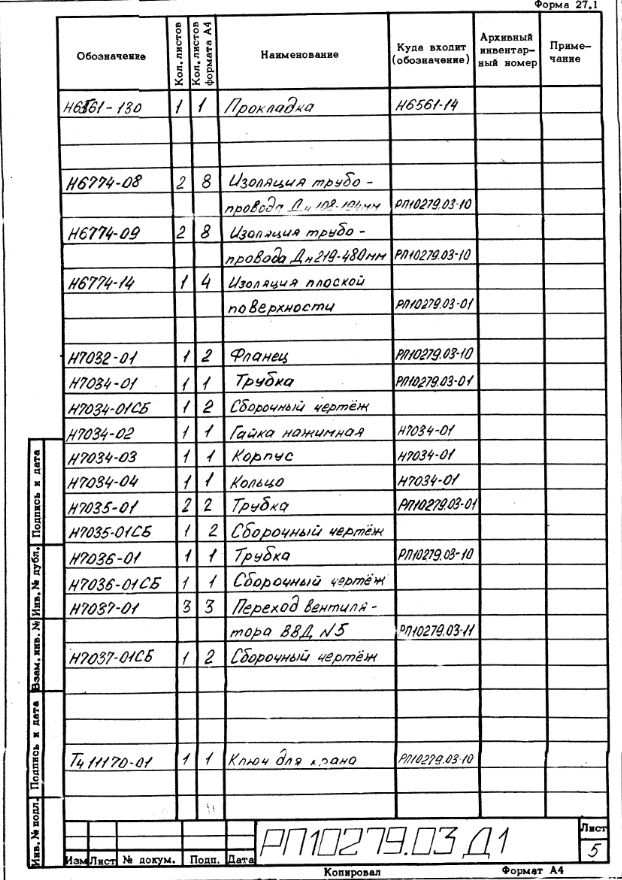 Форма 27.1
Обозначение Кол. листов Кол. листов формата А4 Наименование Куда входит (обозначение) Архивный инвентарный номер Приме-чание
Н6561-130 1 1 Прокладка Н6561-14
Н6774-08 2 8 Изоляция трубо-
провода Дн 108-194мм РП10279.03-10
Н6774-09 2 8 Изоляция трубо-
провода Дн219-480мм РП10279.03-10
Н6774-14 1 4 Изоляция плоской
поверхности РП10279.03-01
Н7032-01 1 2 Фланец РП10279.03-10
Н7034-01 1 1 Трубка РП10279.03-01
Н7034-01СБ 1 2 Сборочный чертёж
Н7034-02 1 1 Гайка нажимная Н7034-01
Н7034-03 1 1 Корпус Н7034-01
Н7034-04 1 1 Кольцо Н7034-01
Н7035-01 2 2 Трубка РП10279.03-01
Н7035-01СБ 1 2 Сборочный чертёж
Н7036-01 1 1 Трубка РП10279.03-10
Н7036-01СБ 1 1 Сборочный чертёж
Н7037-01 3 3 Переход вентиля-
тора ВВД N5 РП10279.03-11
Н7037-01СБ 1 2 Сборочный чертёж
Тч 11170-01 1 1 Ключ для крана РП10279.03-10
Подпись и дата
Инв. № дубл.
Взам. инв. №
Подпись и дата
Инв. № подл.
РП10279.03 Д1
Лист
5
Изм Лист № докум. Подп. Дата
Копировал Формат А4